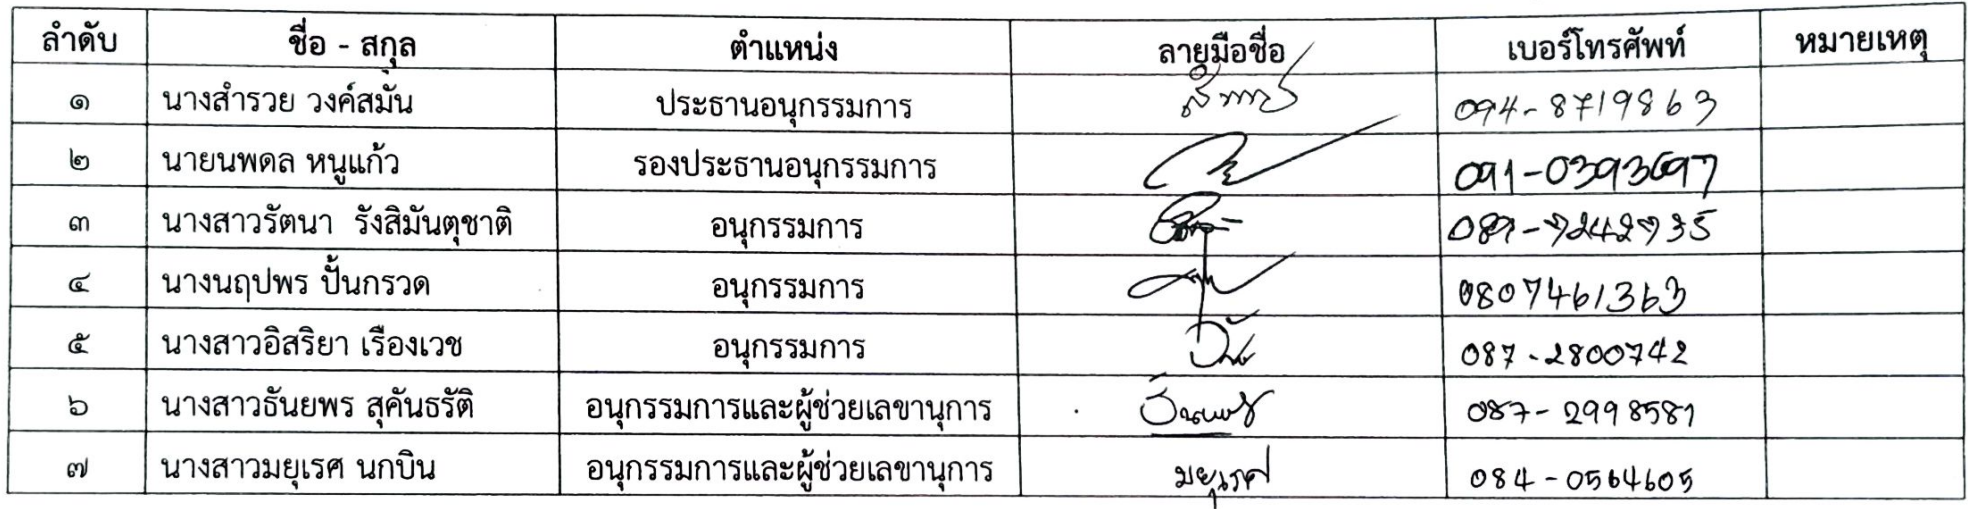 ลำดับ ชื่อ - สกุล ตำแหน่ง ลายมือชื่อ เบอร์โทรศัพท์ หมายเหตุ
๑ นางสำรวย วงค์สมั่น ประธานอนุกรรมการ 094-8719863
๒ นายนพดล หนูแก้ว รองประธานอนุกรรมการ 091-0393697
๓ นางสาวรัตนา รังสิมันตุชาติ อนุกรรมการ
๔ นางนฤปพร ปั้นกรวด อนุกรรมการ 0807461363
๕ นางสาวอิสริยา เรืองเวช อนุกรรมการ 087-2800742
๖ นางสาวธันยพร สุคันธรัติ อนุกรรมการและผู้ช่วยเลขานุการ ธันยพร 087-2998581
๗ นางสาวมยุเรศ นกบิน อนุกรรมการและผู้ช่วยเลขานุการ มยุเรศ 084-0564605